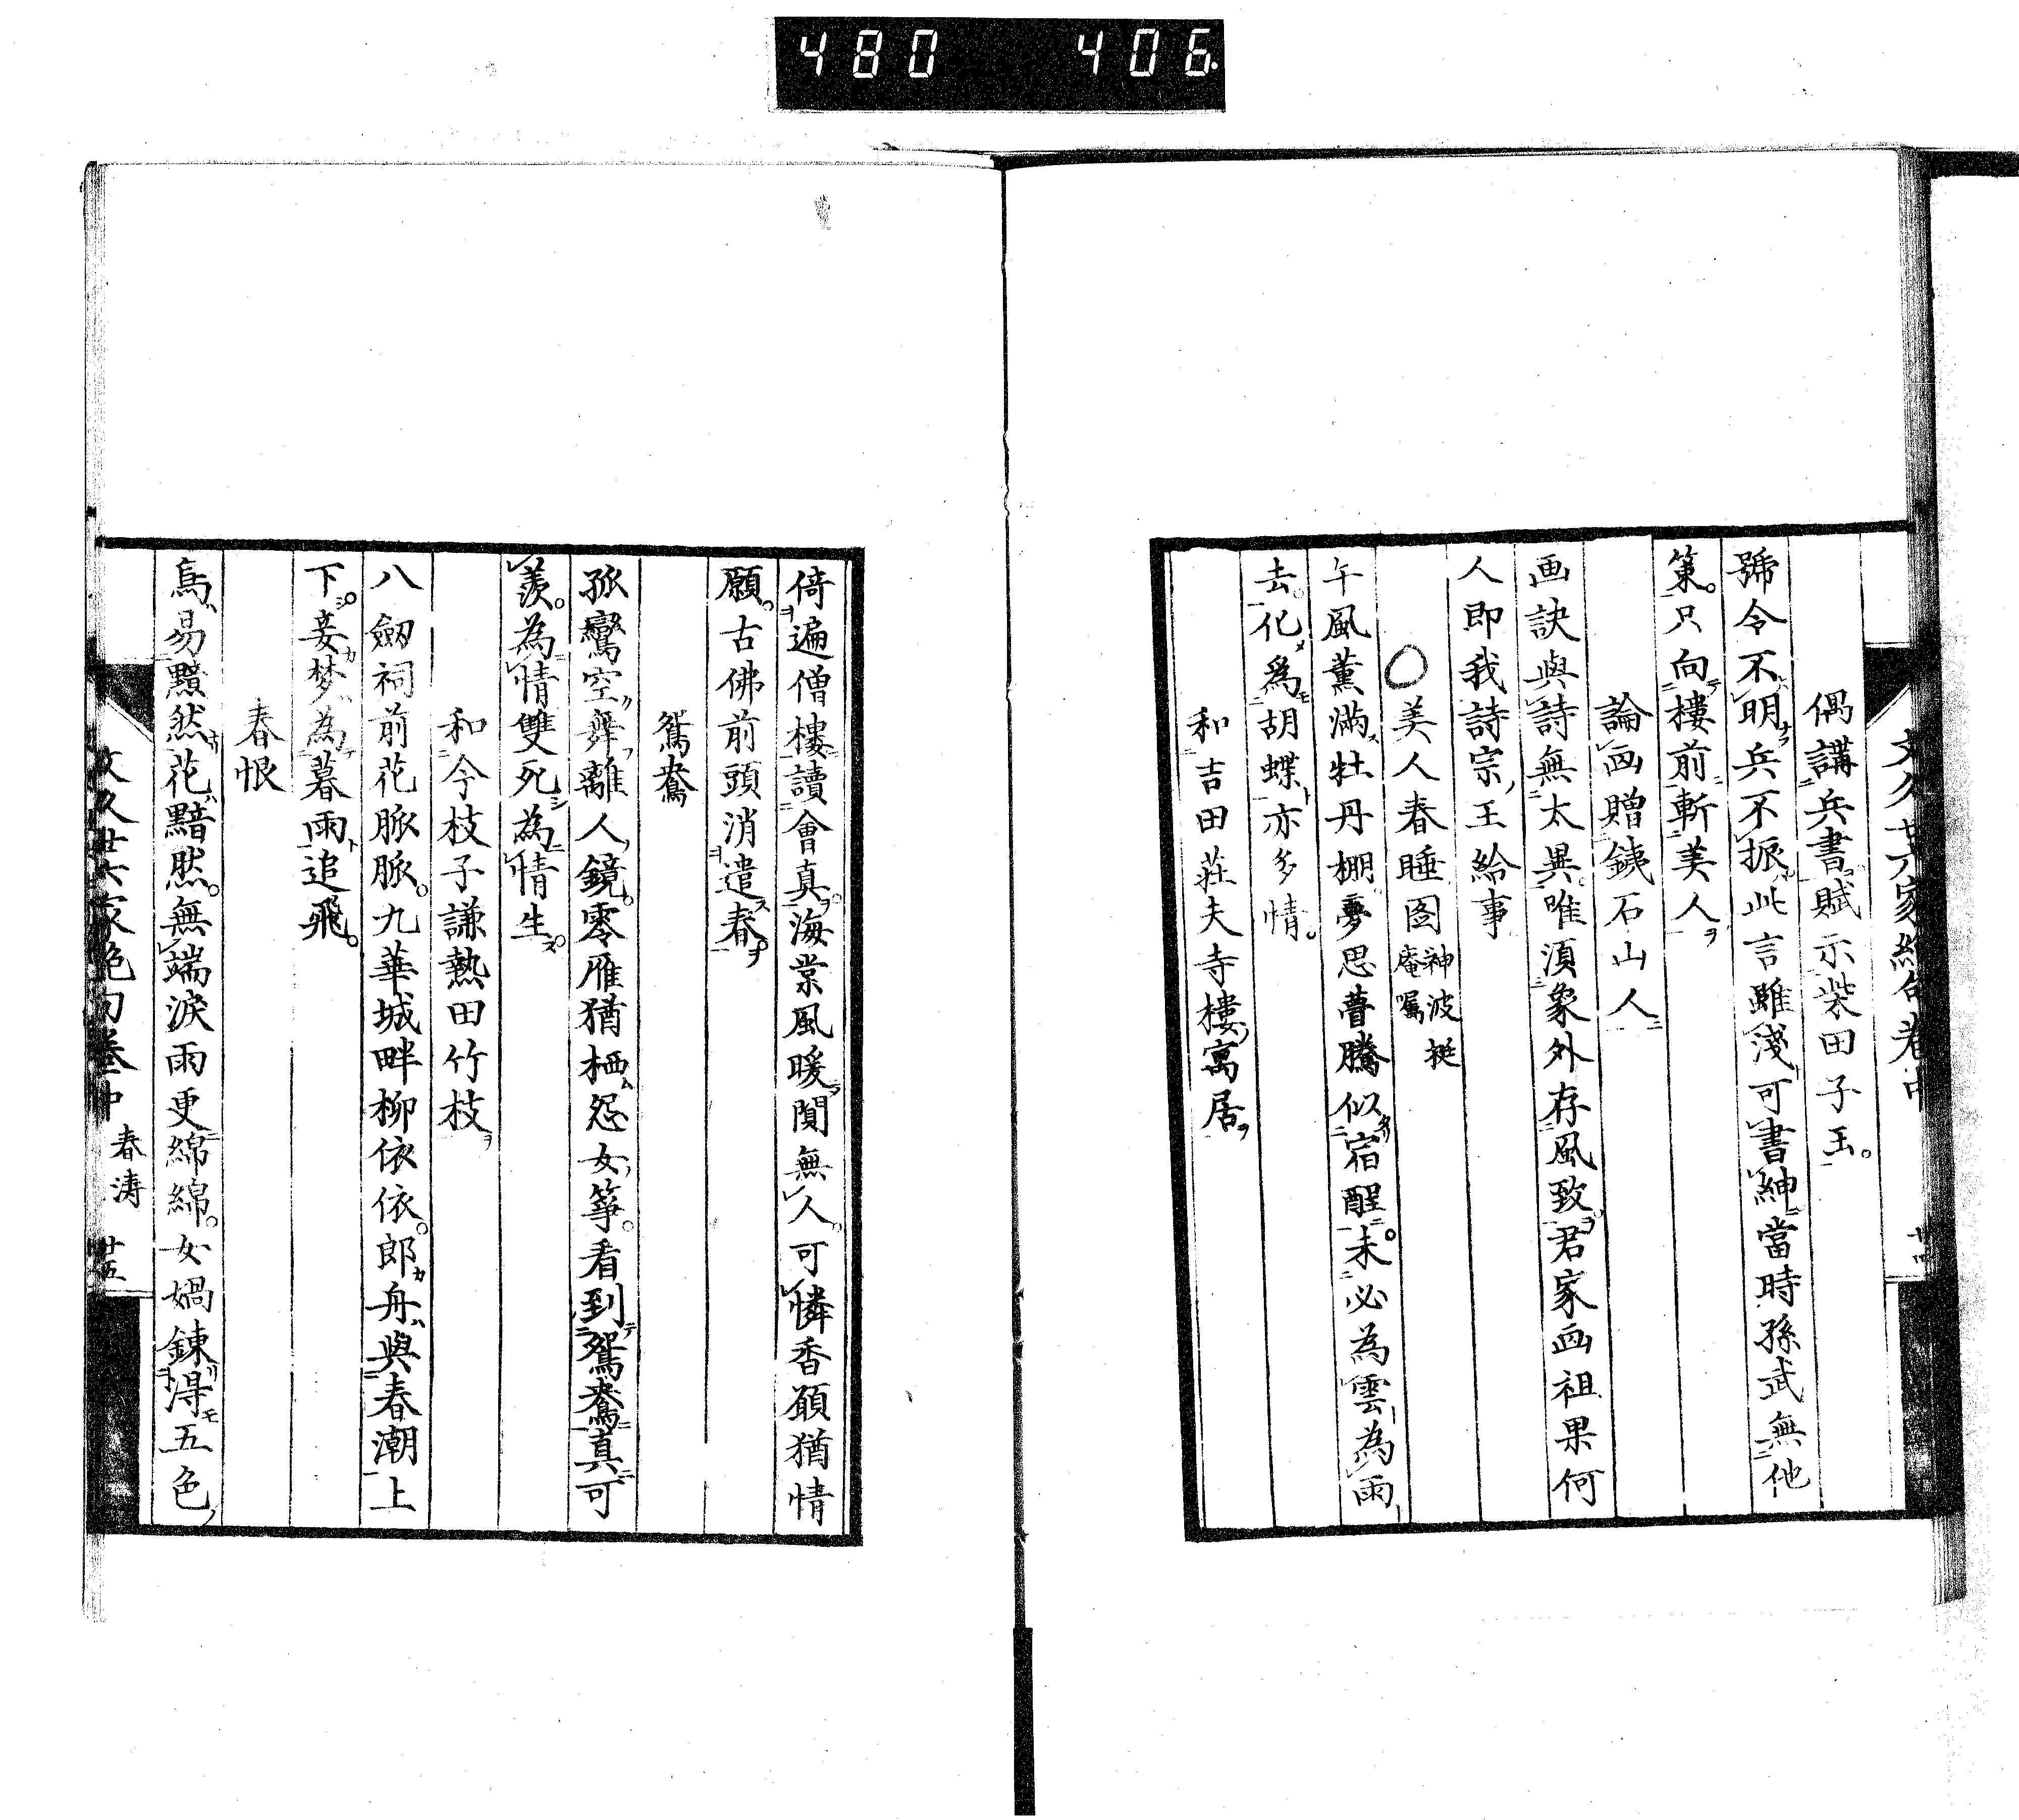 480 406
文久廿六家絶句卷中
廿四
偶講兵書賦示柴田子玉。
號令不明兵不振此言雖淺可書紳當時孫武無他
策。只向樓前斬美人
論画贈銕石山人
画訣與詩無太異唯須象外存風致君家画祖果何
人即我詩宗王給事
○美人春睡圖 神波挺菴囑
午風薫滿牡丹棚夢思瞢騰似宿酲。未必為雲為雨
去。化爲胡蝶亦多情。
和吉田莊夫寺樓寓居
倚遍僧樓讀會真。海棠風暖闃無人。可憐香願猶情
願。古佛前頭消遣春。
鴛鴦
孤鸞空舞離人鏡。零雁猶栖怨女箏。看到鴛鴦真可
羨。為情雙死為情生。
和今枝子謙熱田竹枝
八劔祠前花脈脈。九華城畔柳依依。郎舟與春潮上
下。妾梦為暮雨追飛。
春恨
鳥易黯然花黯然。無端淚雨更綿綿。女媧鍊得五色
文久廿六家絶句卷中 春涛 廿五